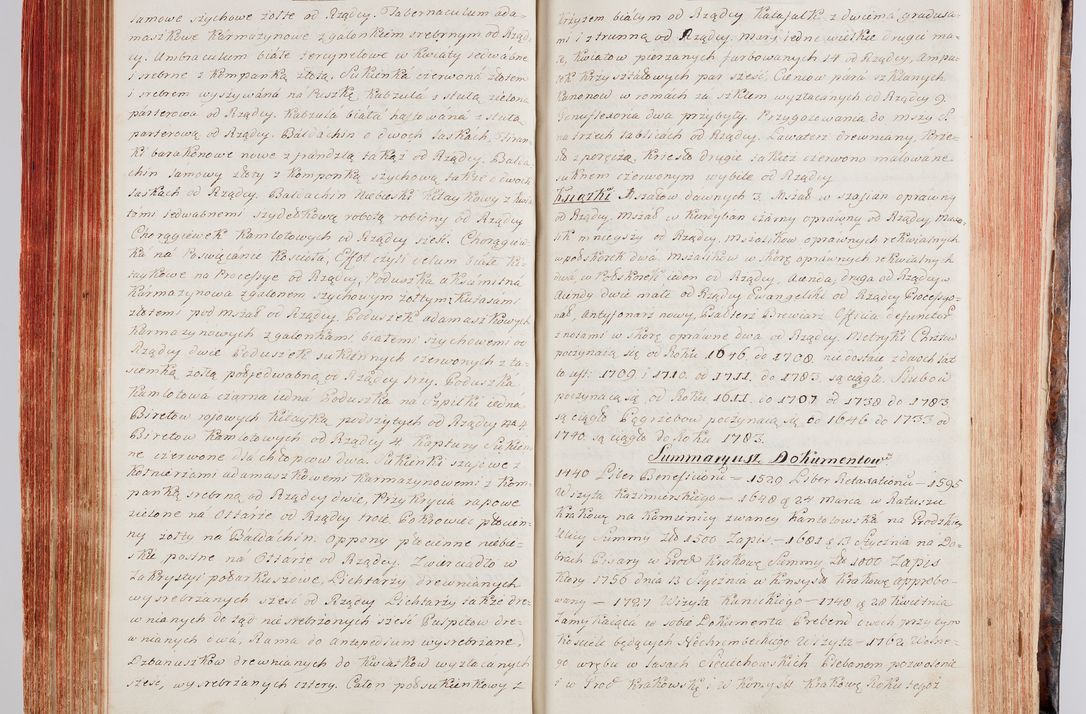 lamowe szychowe żołte od Rządcy. Tabernaculum ada-
maszkowe karmazynowe z galonkiem srebrnym od Rząd-
cy. Umbraculum białe tercynelowe w kwiaty jedwabne
i srebrne z kompanką złotą. Sukienka czerwona złotem
i srebrem wyszywana na Puszkę. Kabzula z stułą zielona
parterowa od Rządcy. Kabzula biała haftowana z stułą
parterową od Rządcy. Baldachin o dwoch laskach, Firan-
ki barakonowe nowe z frandzlą takąż od Rządcy. Balda-
chin lamowy złoty z komponką szychową także o dwoch
laskach od Rządcy. Baldachin Niebieski kitaykowy z kwia-
tami jedwabnemi szydełkową robotą robiony od Rządcy
Chorągiewek kamlotowych od Rządcy sześć. Chorągiew-
ka na Poswącanie Kościoła, Effot czyli velum białe ki-
taykowe na Processye od Rządcy, Poduszka aksamitna
karmazynowa z galonem szychowym żołtym z kutasami
złotemi pod mszał od Rządcy. Poduszek adamaszkowych
karmazynowych z galonkami białemi szychowemi od
Rządcy dwie Poduszek sukiennych czerwonych z ta-
siemką żołtą półjedwabną od Rządcy trzy. Poduszka
kamlotowa czarna jedna Poduszka na Szpilki jedna
Biretow rojowych kitayką podszytych od Rządcy 4
Biretow kamlotowych od Rządcy 4. Kaptury Sukien-
ne czerwone dla chłopcow dwa. Sukienki szajowe z
kołnierzami adamaszkowemi karmazynowemi z kom-
panką srebrną od Rządcy dwie, Przykrycia rapowe
zielone na Ołtarze od Rządcy troie. Pokrowiec płocien-
ny żołty na Baldachin. Oppony płocienne niebie-
skie postne na Ołtarze od Rządcy. Zwierciadło w
Zakrystyi połarkuszowe. Lichtarzy drewnianych
wysrebrzanych sześć od Rządcy Lichtarzy także dre-
wnianych do łąd nasrebrzonych sześć Pulpitow dre-
wnianych dwa, Rama do antipedium wysrebrzane
Dzbanuszkow drewnianych do kwiatkow wyzłacanych
sześć, wysrebrzanych cztery. Całon połsukienkowy z
krzyżem białym od Rządcy Katafalk z dwiema gradusa-
mi i z trunną od Rządcy. Mary jedne wielkie drugie ma-
łe, Kwiatow pierzanych farbowanych 14 od Rządcy, Ampu-
łek krzyształowych par sześć. Cieniow para szklanych
Kanonow w romach za szkłem wyzłacanych od Rządcy 9.
Genuflexoria dwa przybyły. Przygotowania do mszy S.
na trzech tablicach od Rządcy. Lawaterz drewniany, Krze-
sło z poręczą, Krzesło drugie takież czerwono malowane
suknem czerwonym wybite od Rządcy
Książki Mszałow dawnych 3. Mszał w szafian oprawny
od Rządcy. Mszał w Kurdyban czarny oprawny od Rządcy Msza-
lik mnieyszy od Rządcy. Mszalikow oprawnych rekwialnych
w połskorek dwa. Mszalikow w skorę oprawnych rekwialnych
dwa, w Połskorek jeden od Rządcy. Agenda, druga od Rządcy
Agendy dwie małe od Rządcy Ewangeliki od Rządcy Processyo-
nał, Antyfonarz nowy, Psałterz Brewiarz Officia Defunctor
z notami w skorę oprawne dwa od Rządcy. Metryki Chrztow
poczynaią się od Roku 1646 do 1708. nie dostaie z dwoch lat
to iest: 1709 i 1710. od 1711. do 1783. są ciągłe. Slubow
poczynaią się od Roku 1611. do 1707 od 1738 do 1783
są ciągłe Pogrzebow poczynaią się od 1646 do 1733 od
1740. są ciągłe do Roku 1783.
Summaryusz Dokumentow
1440 Liber Beneficiorū – 1529 Liber Retaxationū – 1595
Wizyta Kazimierskiego – 1648 d 24 Marca w Ratuszu
Krakow. na Kamienicy zwaney Kantotowska na Grodzkiey
Ulicy Summy Złł 1500 Zapis – 1681 d 13 Stycznia na Do-
brach Pisary w Grod. Krakow. Summy Złł 1000 Zapis
ktory 1756 dnia 13 Stycznia w Konsyst. Krakow. approbo-
wany – 1727 Wizyta Kunickiego – 1748 d 28 Kwietnia
Zamykaiąca w sobie Dokumenta Prebend dwoch przy tym
Kosciele będących Wizyta – 1762 Wolne-
go wrębu w Lasach Plebanom pozwolenie
i w Grod. Krakowski i w Konsyst. Krakow. Roku tegoż